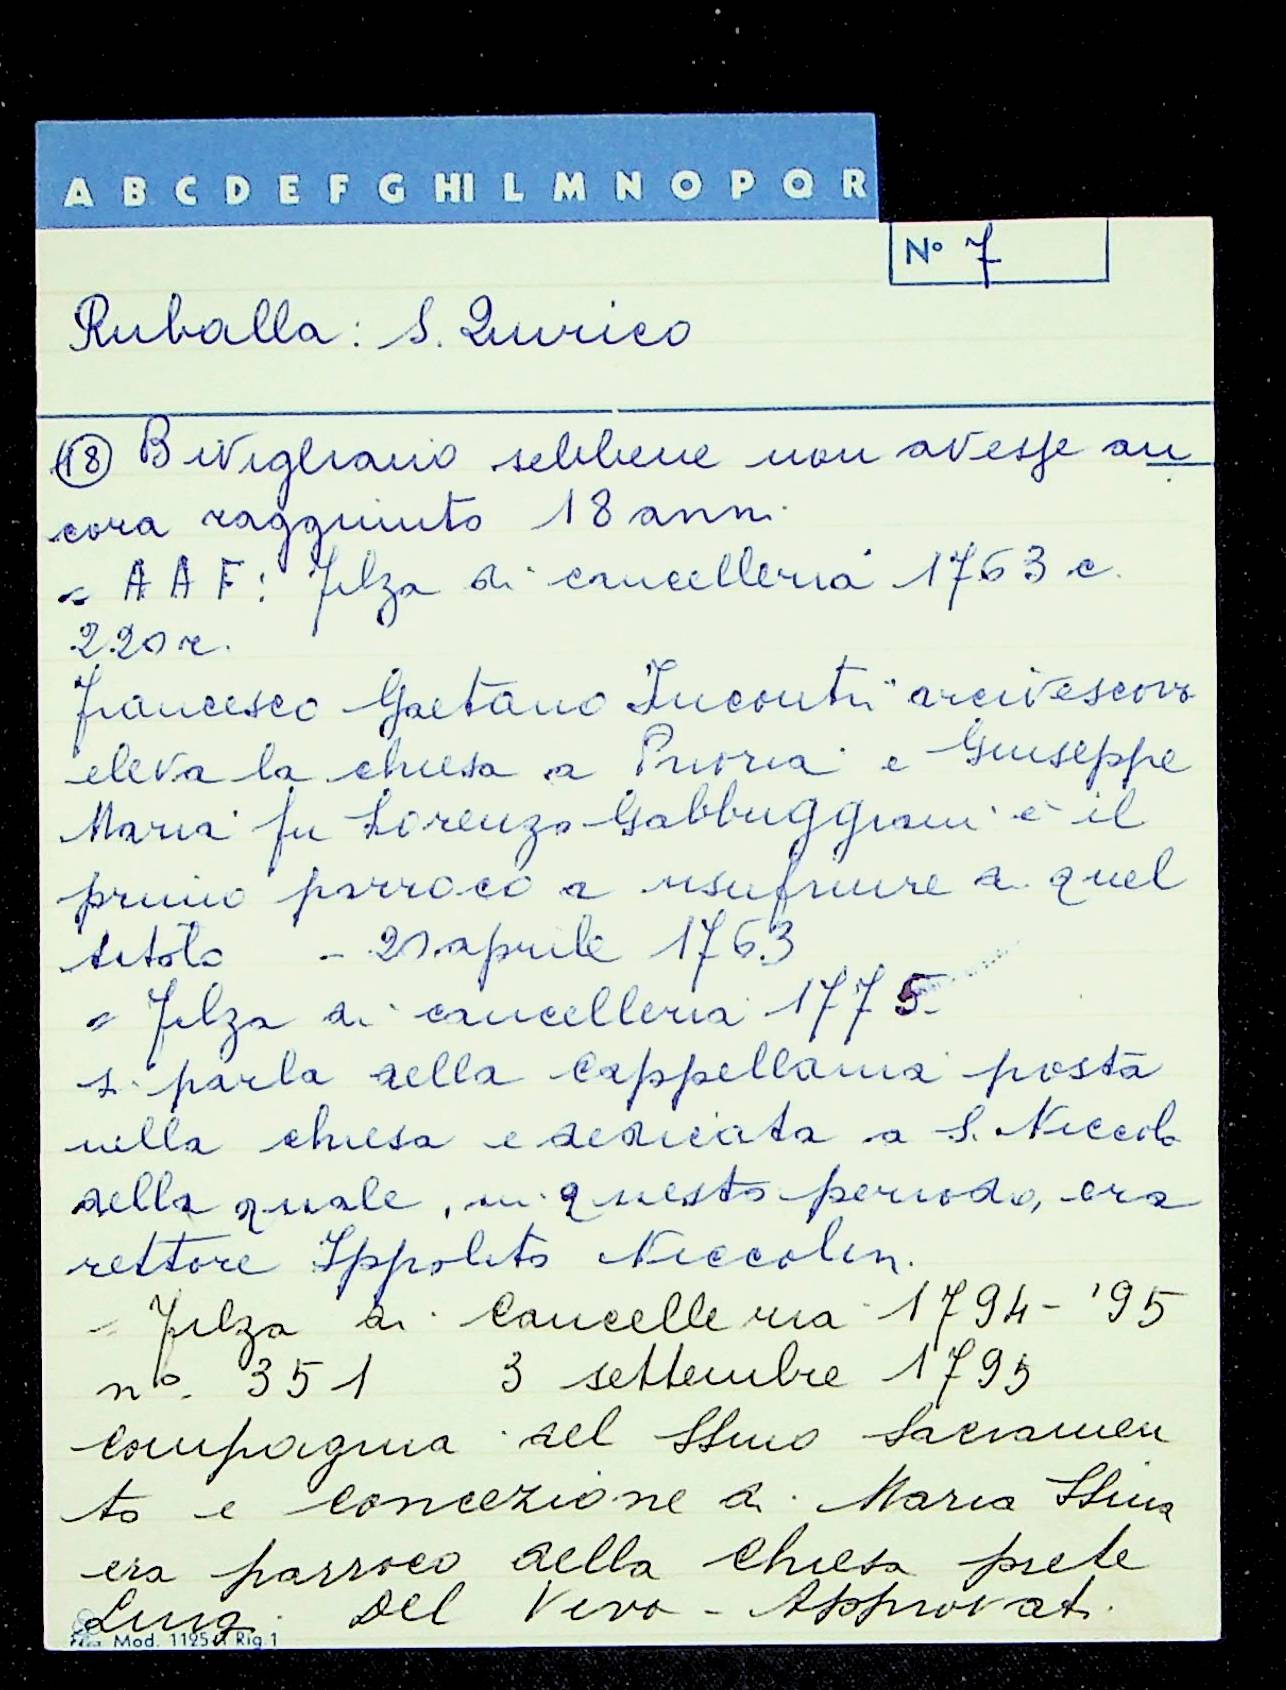 A B C D E F G HI L M N O P Q R
N° 7
Ruballa: S. Quirico
(18) Bivigliano sebbene non avesse an
cora raggiunto 18 anni.
= A A F: Filza di cancelleria 1763 c.
220 r.
Francesco Gaetano Incontri arcivescovo
eleva la chiesa a Prioria e Giuseppe
Maria fu Lorenzo Gabbuggiani è il
primo parroco a usufruire di quel
titolo - 21 aprile 1763
= Filza di cancelleria 1775.
si parla della cappellania posta
nella chiesa e dedicata a S. Niccolò
della quale, in questo periodo, era
rettore Ippolito Niccolini.
= Filza di Cancelleria 1794-'95
n°. 351 3 settembre 1795
Compagnia del SSmo Sacramen
to e Concezione di Maria SSma
era parroco della chiesa prete
Luigi Del Vivo - Approvat.
Mod. 1125 Rig.1